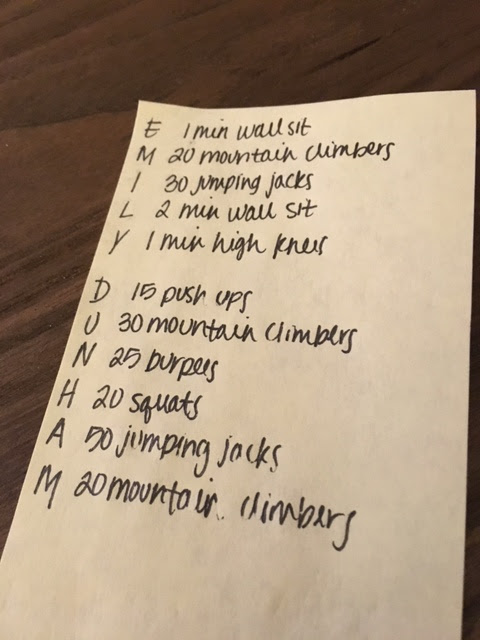 E 1 min wall sit
M 20 mountain climbers
I 30 jumping jacks
L 2 min wall sit
Y 1 min high knees
D 15 push ups
U 30 mountain climbers
N 25 burpees
H 20 squats
A 50 jumping jacks
M 20 mountain climbers